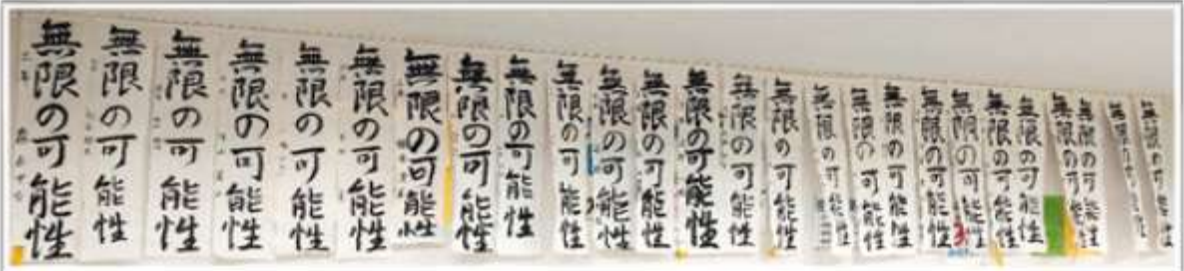 無限の可能性
無限の可能性
無限の可能性
無限の可能性
無限の可能性
無限の可能性
無限の可能性
無限の可能性
無限の可能性
無限の可能性
無限の可能性
無限の可能性
無限の可能性
無限の可能性
無限の可能性
無限の可能性
無限の可能性
無限の可能性
無限の可能性
無限の可能性
無限の可能性
無限の可能性
無限の可能性
無限の可能性
無限の可能性
無限の可能性